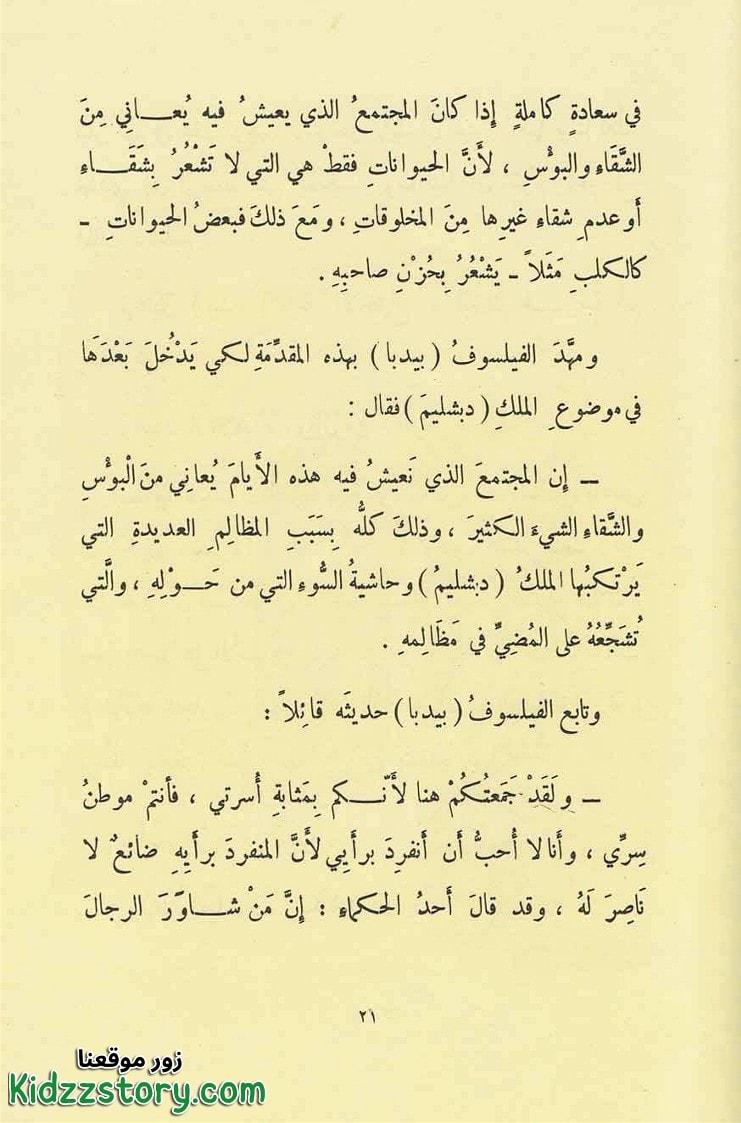 في سعادةٍ كاملةٍ إِذا كانَ المجتمعُ الذي يعيشُ فيه يُعـــاني مِنَ
الشَّقَاءِ والبؤْسِ ، لأَنَّ الحيواناتِ فقطْ هي التي لا تَشْعُرُ بِشَقَـــاءِ
أَو عدمِ شقاءِ غيرِها مِنَ المخلوقاتِ ، ومَعَ ذلكَ فبعضُ الحيواناتِ ـ
كالكلبِ مَثَلاً ـ يَشْعُرُ بِحُزْنِ صاحبِهِ .
ومهَّدَ الفيلسوفُ ( بيدبا ) بهذه المقدِّمَةِ لكي يَدْخُلَ بَعْدَهَا
في موضوعِ الملكِ ( دبشليمَ ) فقال :
ــ إِن المجتمعَ الذي نَعيشُ فيه هذه الأَيامَ يُعانِي منَ الْبؤْسِ
والشَّقاءِ الشيءَ الكثيرَ ، وذلكَ كلُّه بِسَبَبِ المظالِمِ العديدةِ التي
يَرْتكبُها الملكُ ( دبشليمُ ) وحاشيةُ السُّوءِ التي من حَـــوْلِهِ ، والَّتي
تُشَجِّعُهُ على المُضِيِّ في مَظَالِمهِ .
وتابع الفيلسوفُ ( بيدبا ) حديثَه قائِلاً :
ــ ولَقَدْ جَمَعتُكُمْ هنا لأَنّــكم بِمَثابةِ أُسرتي ، فأَنتمْ موطنُ
سِرِّي ، وأَنا لا أُحبُّ أَن أَنفرِدَ برأْيي لأَنَّ المنفردَ برأْيِهِ ضائعٌ لا
نَاصِرَ لَهُ ، وقد قالَ أَحدُ الحكماءِ : إِنَّ مَنْ شـــاوَرَ الرجالَ
٢١
زور موقعنا
Kidzzstory.com